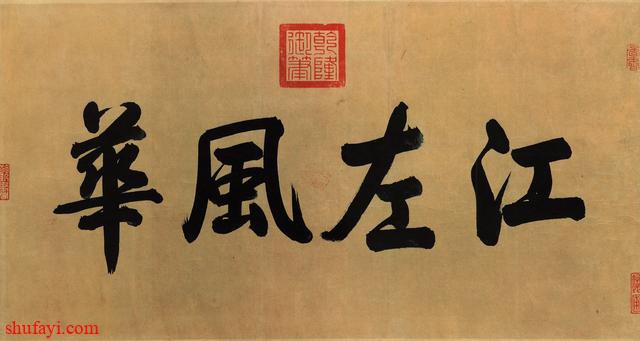 江左風華
乾隆御筆
shufayi.com